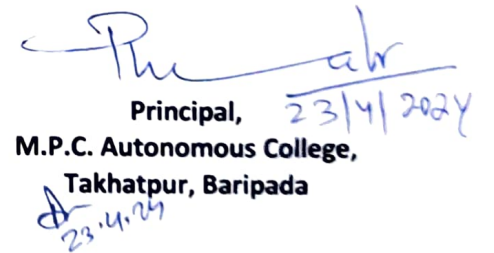 23/4/2024
Principal,
M.P.C. Autonomous College,
Takhatpur, Baripada
23.4.24